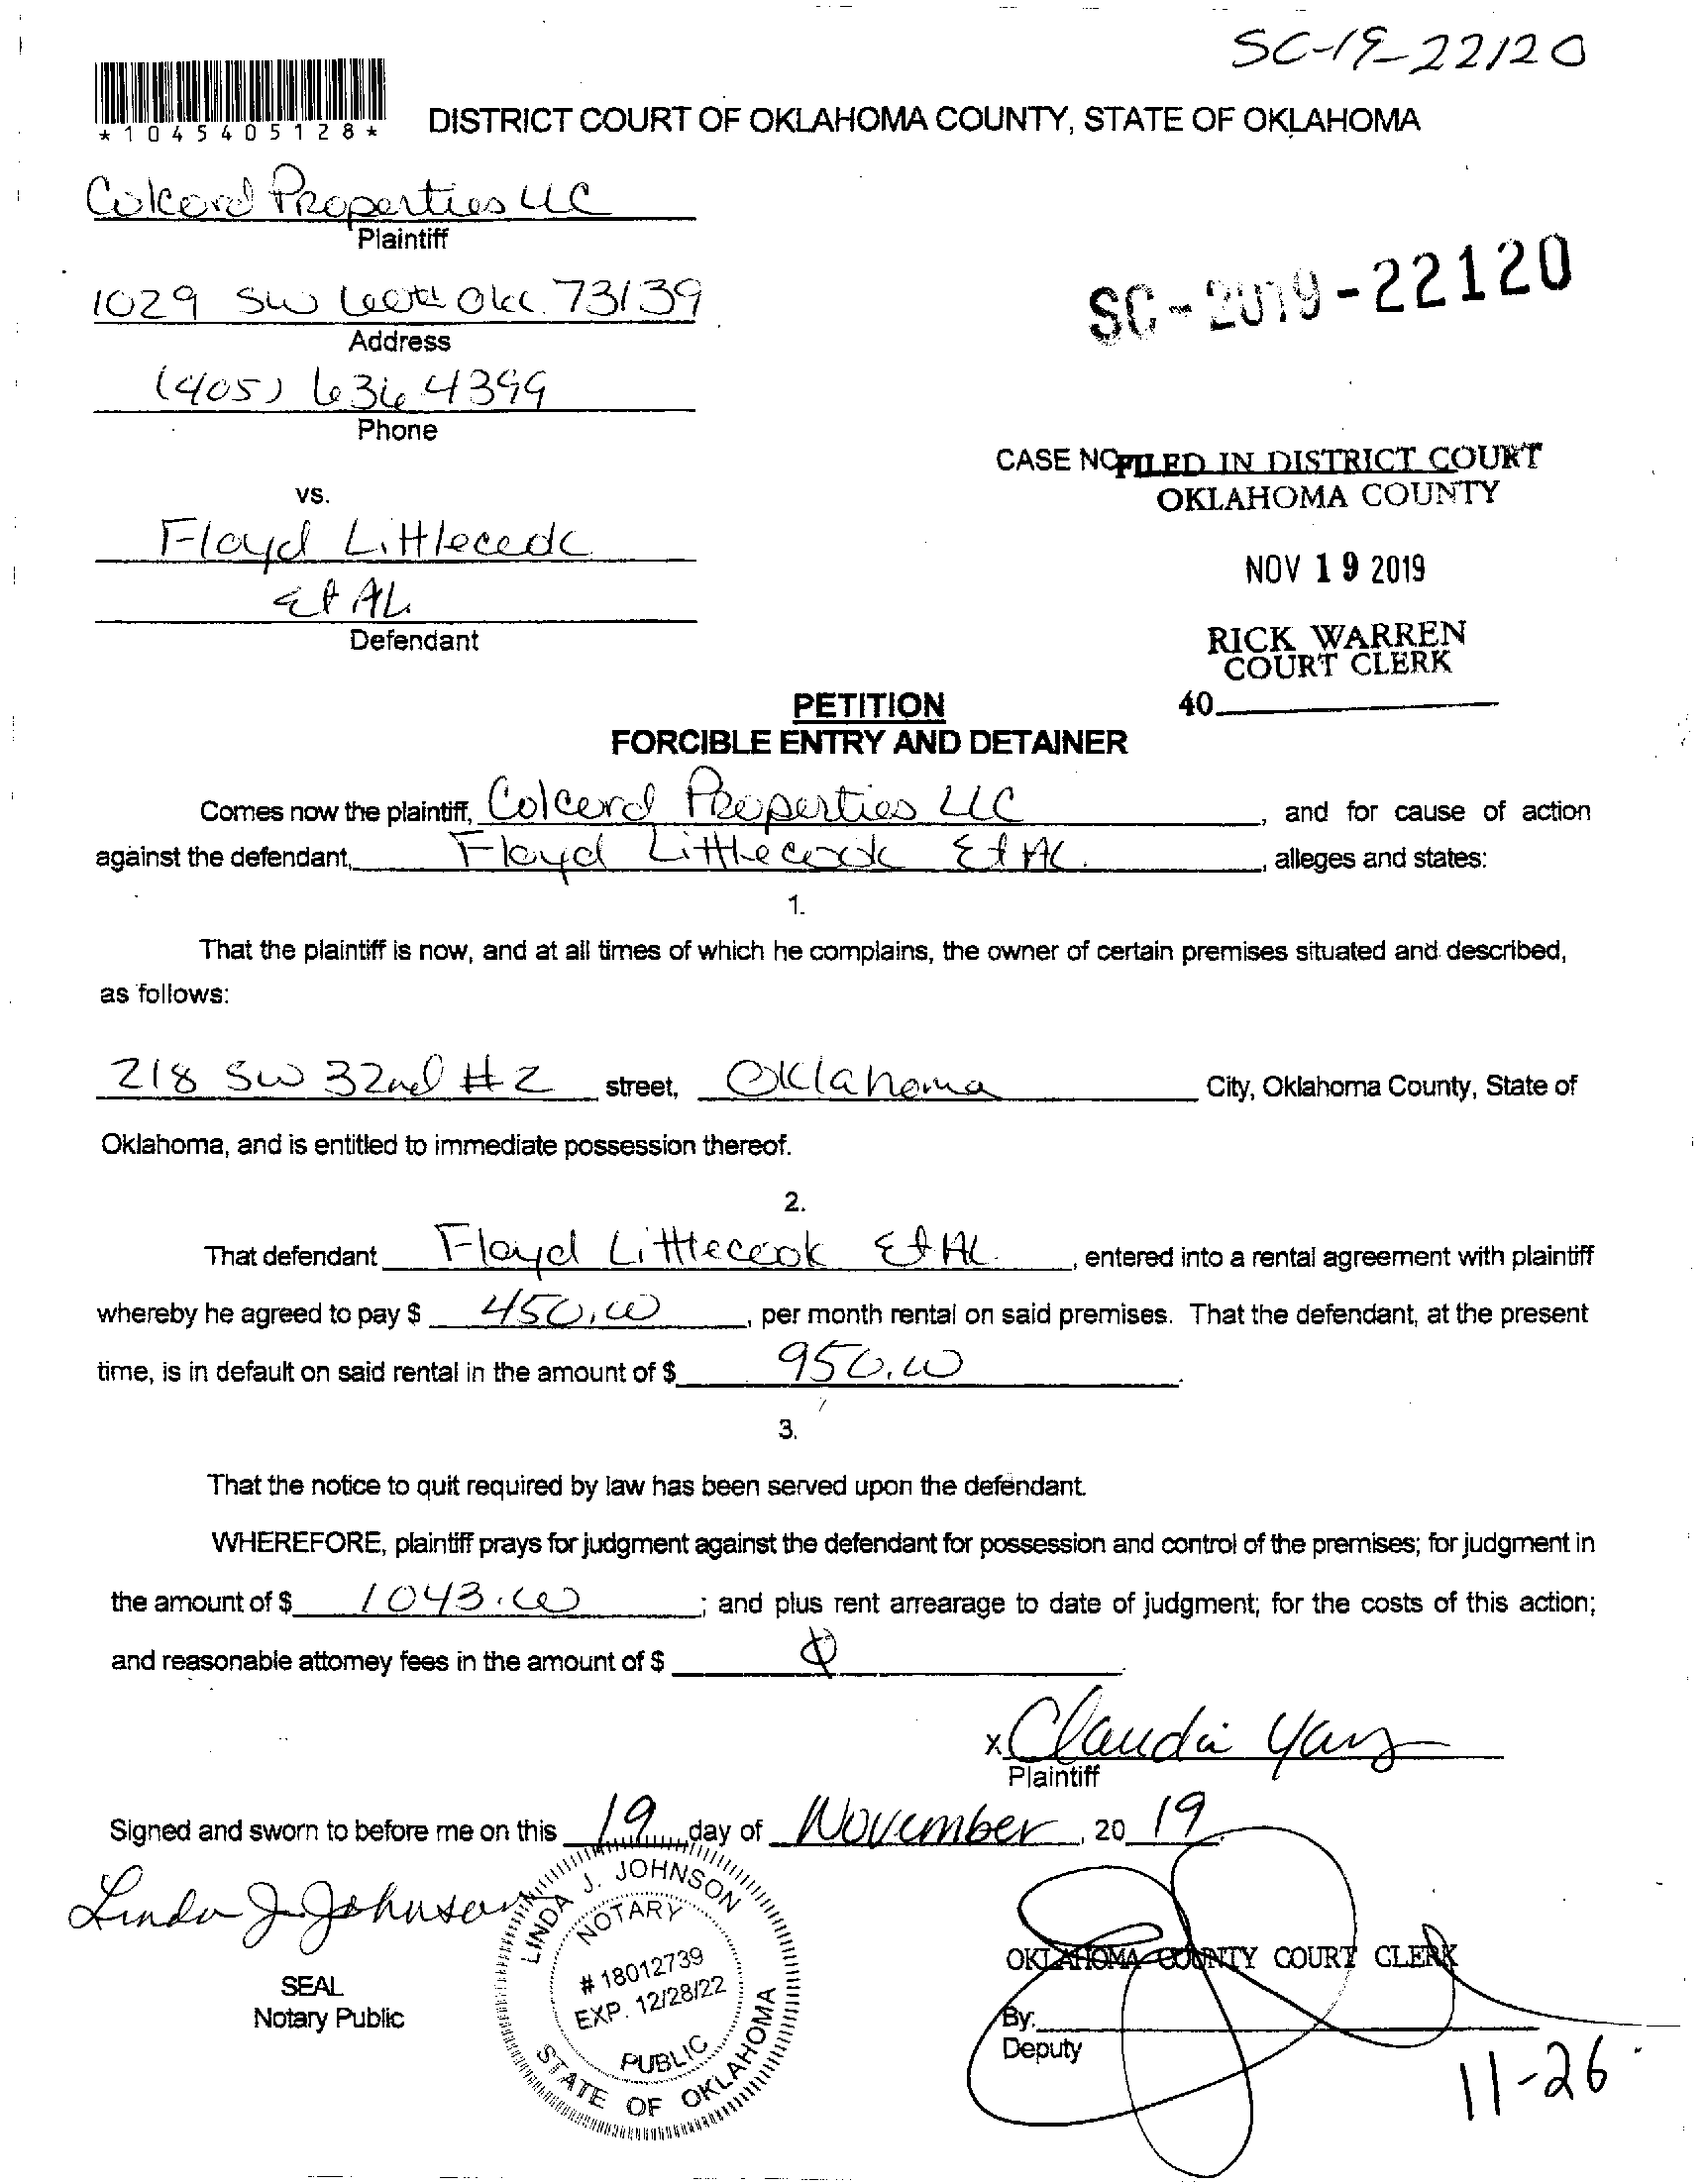 SC-19-22120
*1045405128*
DISTRICT COURT OF OKLAHOMA COUNTY, STATE OF OKLAHOMA
Colcord Properties LLC
Plaintiff
1029 SW Okc 73139
Address
SC-2019-22120
(405) 636 4399
Phone
CASE NO FILED IN DISTRICT COURT
OKLAHOMA COUNTY
vs.
Floyd Littlecook
Et AL
Defendant
NOV 19 2019
RICK WARREN
COURT CLERK
40
PETITION
FORCIBLE ENTRY AND DETAINER
Comes now the plaintiff, Colcord Properties LLC, and for cause of action
against the defendant, Floyd Littlecook Et AL., alleges and states:
1.
That the plaintiff is now, and at all times of which he complains, the owner of certain premises situated and described,
as follows:
218 SW 32nd #2 street, Oklahoma City, Oklahoma County, State of
Oklahoma, and is entitled to immediate possession thereof.
2.
That defendant Floyd Littlecook Et AL., entered into a rental agreement with plaintiff
whereby he agreed to pay $ 450.00, per month rental on said premises. That the defendant, at the present
time, is in default on said rental in the amount of $ 950.00.
3.
That the notice to quit required by law has been served upon the defendant.
WHEREFORE, plaintiff prays for judgment against the defendant for possession and control of the premises; for judgment in
the amount of $ 1043.00; and plus rent arrearage to date of judgment; for the costs of this action;
and reasonable attorney fees in the amount of $
x Claudia
Plaintiff
Signed and sworn to before me on this 19 day of November, 2019.
Linda J. Johnson
SEAL
Notary Public
LINDA J. JOHNSON
NOTARY
# 18012739
EXP. 12/28/22
PUBLIC
STATE OF OKLAHOMA
OKLAHOMA COUNTY COURT CLERK
By:
Deputy
11-26